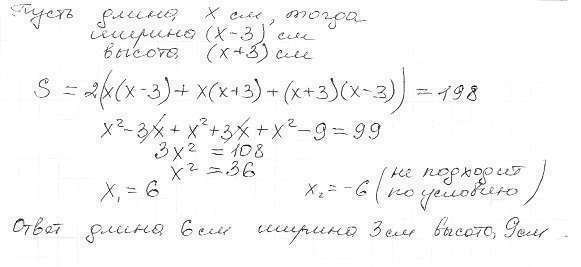 Пусть длина x см, тогда
ширина (x-3) см
высота (x+3) см
S = 2(x(x-3) + x(x+3) + (x+3)(x-3)) = 198
x² - 3x + x² + 3x + x² - 9 = 99
3x² = 108
x² = 36
x₁ = 6 x₂ = -6 (не подходит по условию)
Ответ длина 6 см ширина 3 см высота 9 см